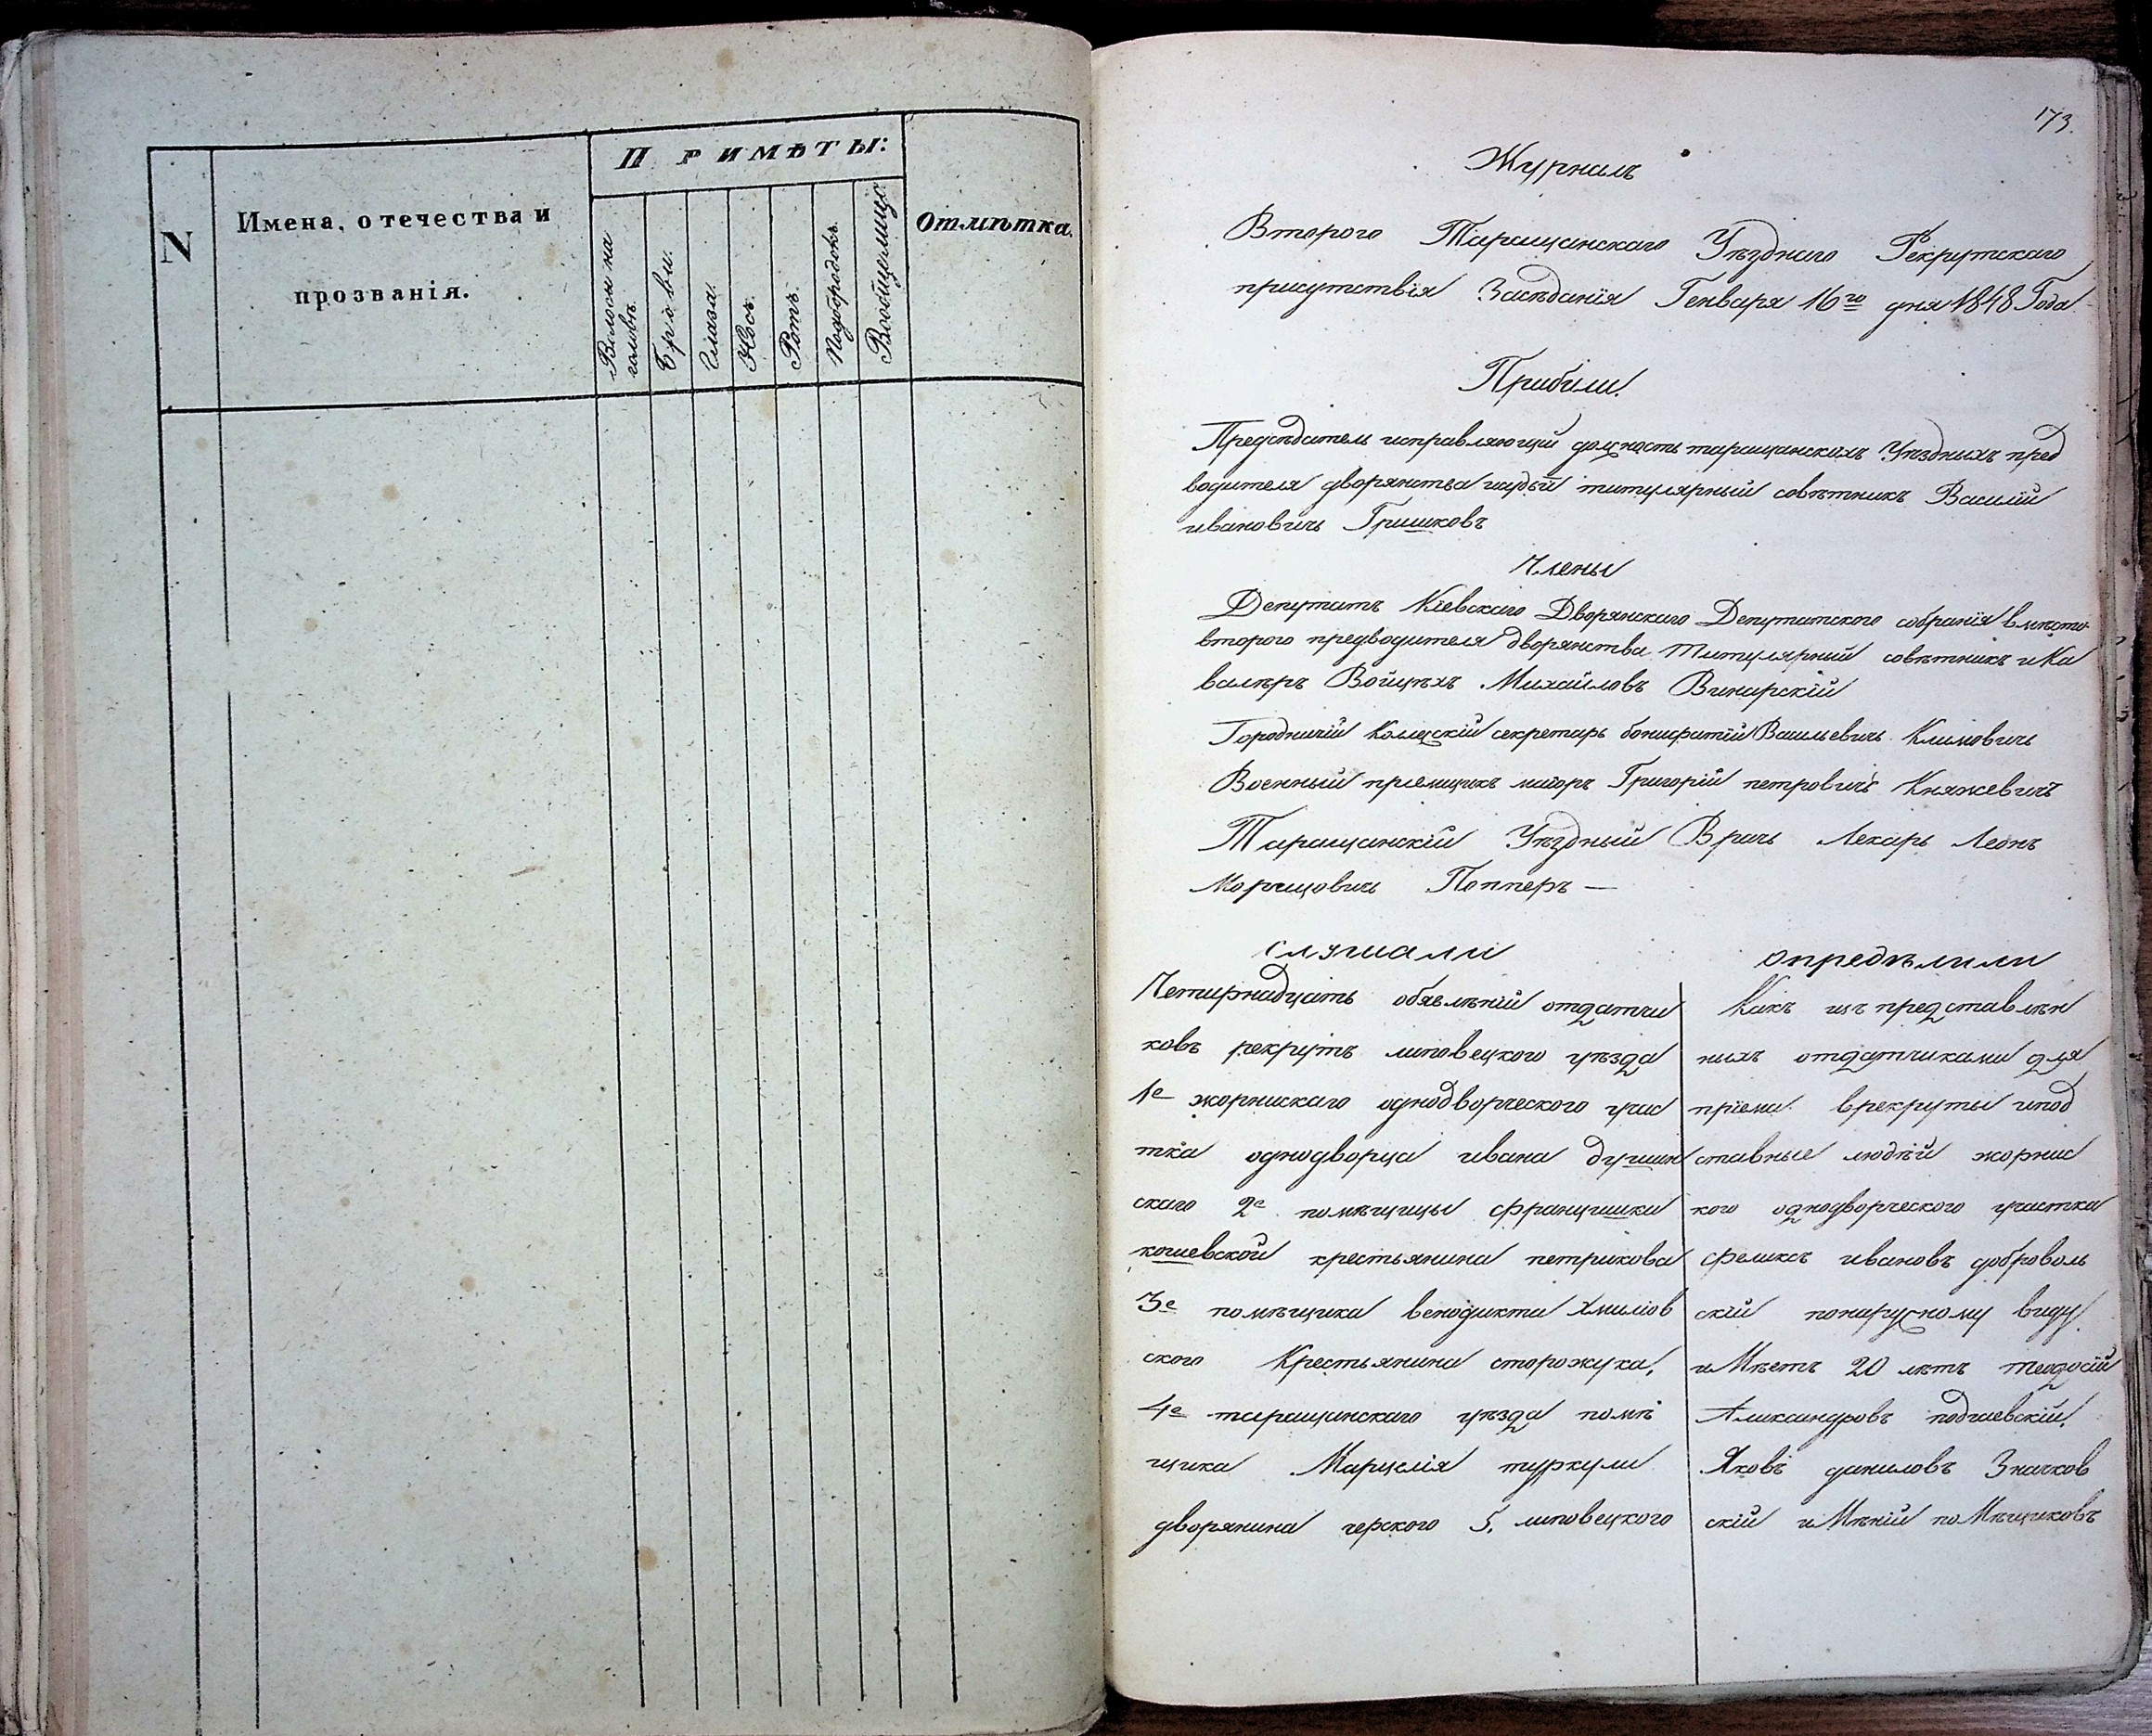 N
Имена, отечества и
прозванія.
Примѣты:
Волосы на
головѣ.
Брови.
Глаза.
Носъ.
Ротъ.
Подбородокъ.
Вообще лицо
Отмѣтка.
173.
Журналъ
Второго Таращанскаго Уѣзднаго Рекрутскаго
присутствія Засѣданія Генваря 16го дня 1848 Года
Прибыли.
Предсѣдатель исправляющій должность таращанскихъ Уѣздныхъ пред
водителя дворянства титулярный совѣтникъ Василій
ивановичъ Гришковъ
Члены
Депутатъ Кіевскаго Дворянскаго Депутатского собранія вмѣсто
второго предводителя дворянства Титулярный совѣтникъ и Ка
валѣръ Войцѣхъ Михайловъ Винарскій
Городничій Колежскій секретарь бонифатій Васильевичъ Климовичъ
Военный пріемщикъ маіоръ Григорій петровичъ Княжевичъ
Таращанскій Уѣздный Врачъ Лекарь Леонъ
Морицовичъ Попперъ —
слушали
Четырнадцать обявлѣній отдатчи
ковъ рекрутъ липовецкого уѣзда
1е жорнискаго однодворческого учас
тка однодворца ивана душин
скаго 2е помѣщицы францишки
кошевской крестьянина петрикова
3е помѣщика венодикта хмилюв
ского Крестьянина сторожука,
4е таращанскаго уѣзда помѣ
щика Марцелія туркули
дворянина черского 5. липовецкого
опредѣлили
Какъ изъ представлѣн
ныхъ отдатчиками для
пріема врекруты ипод
ставные людѣй жорнис
кого однодворческого участка
феликсъ ивановъ доброволь
скій понаружному виду
иМѣетъ 20 лѣтъ теодосій
Аликсандровъ подчаевскій,
Яковъ даниловъ Значков
скій иМѣній поМѣщиковъ